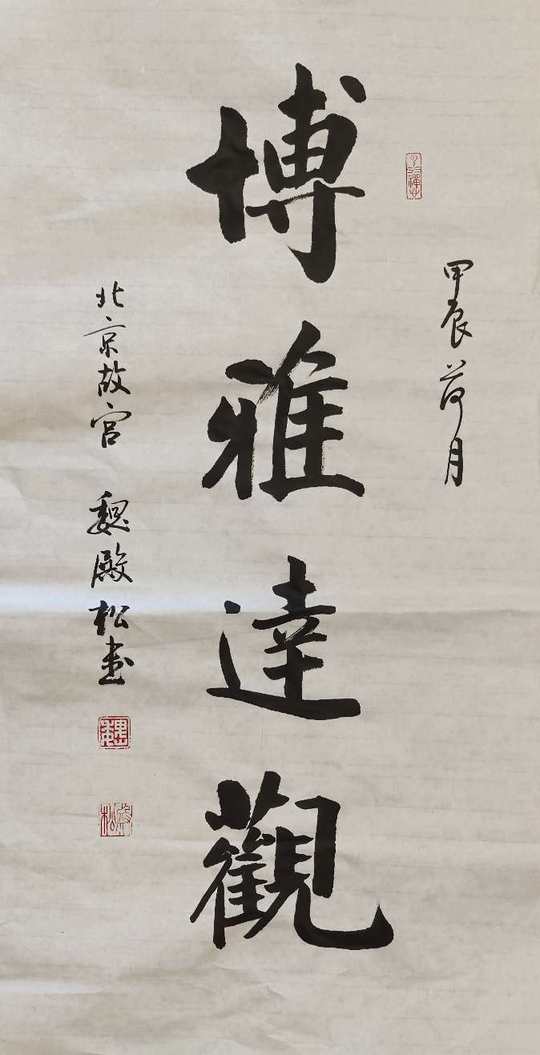 甲辰荷月
博雅達觀
北京故宫 魏殿松书